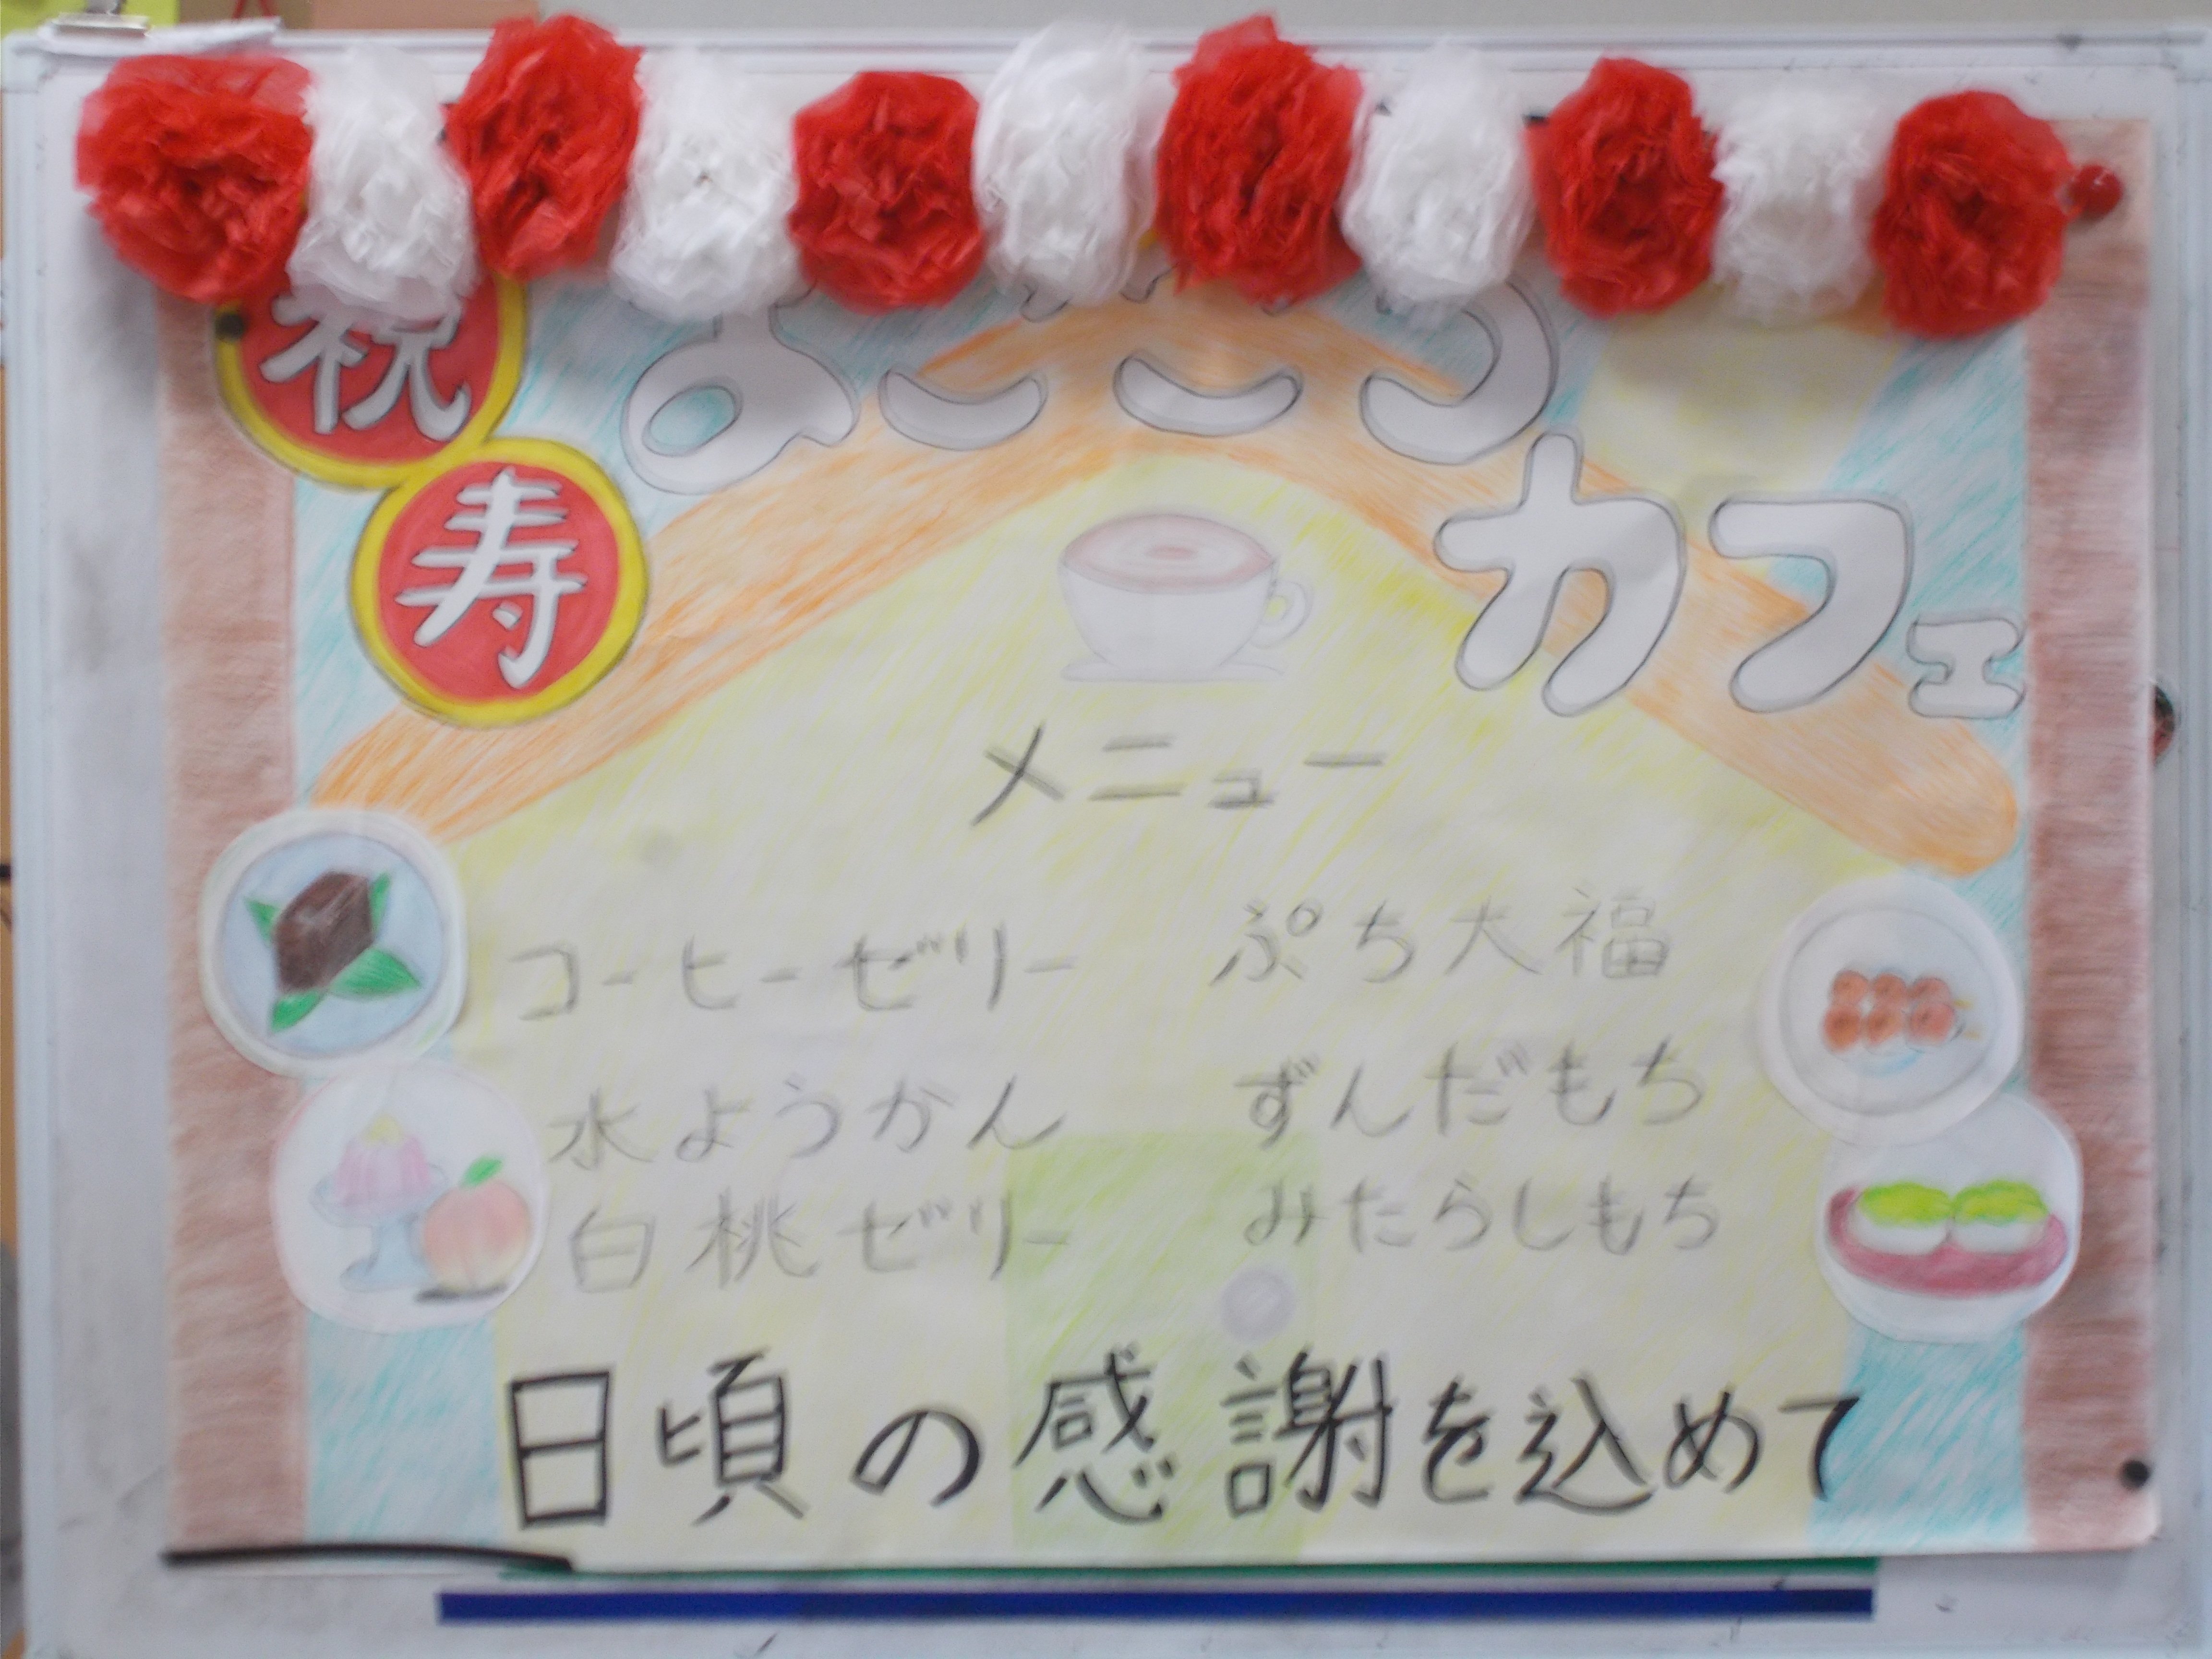 祝
寿
カフェ
メニュー
コーヒーゼリー
水ようかん
白桃ゼリー
ぷち大福
ずんだもち
みたらしもち
日頃の感謝を込めて